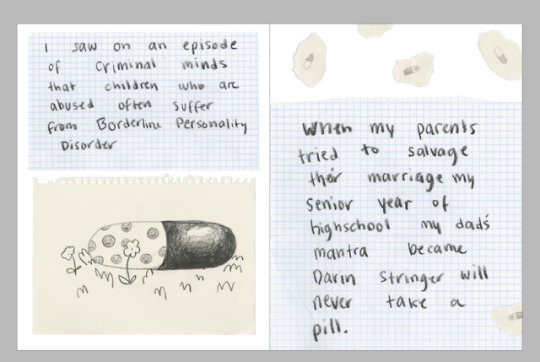 I saw on an episode
of Criminal minds
that children who are
abused often suffer
from Borderline Personality
Disorder
When my parents
tried to salvage
their marriage my
senior year of
highschool my dad's
mantra became
Darin Stringer will
never take a
pill.